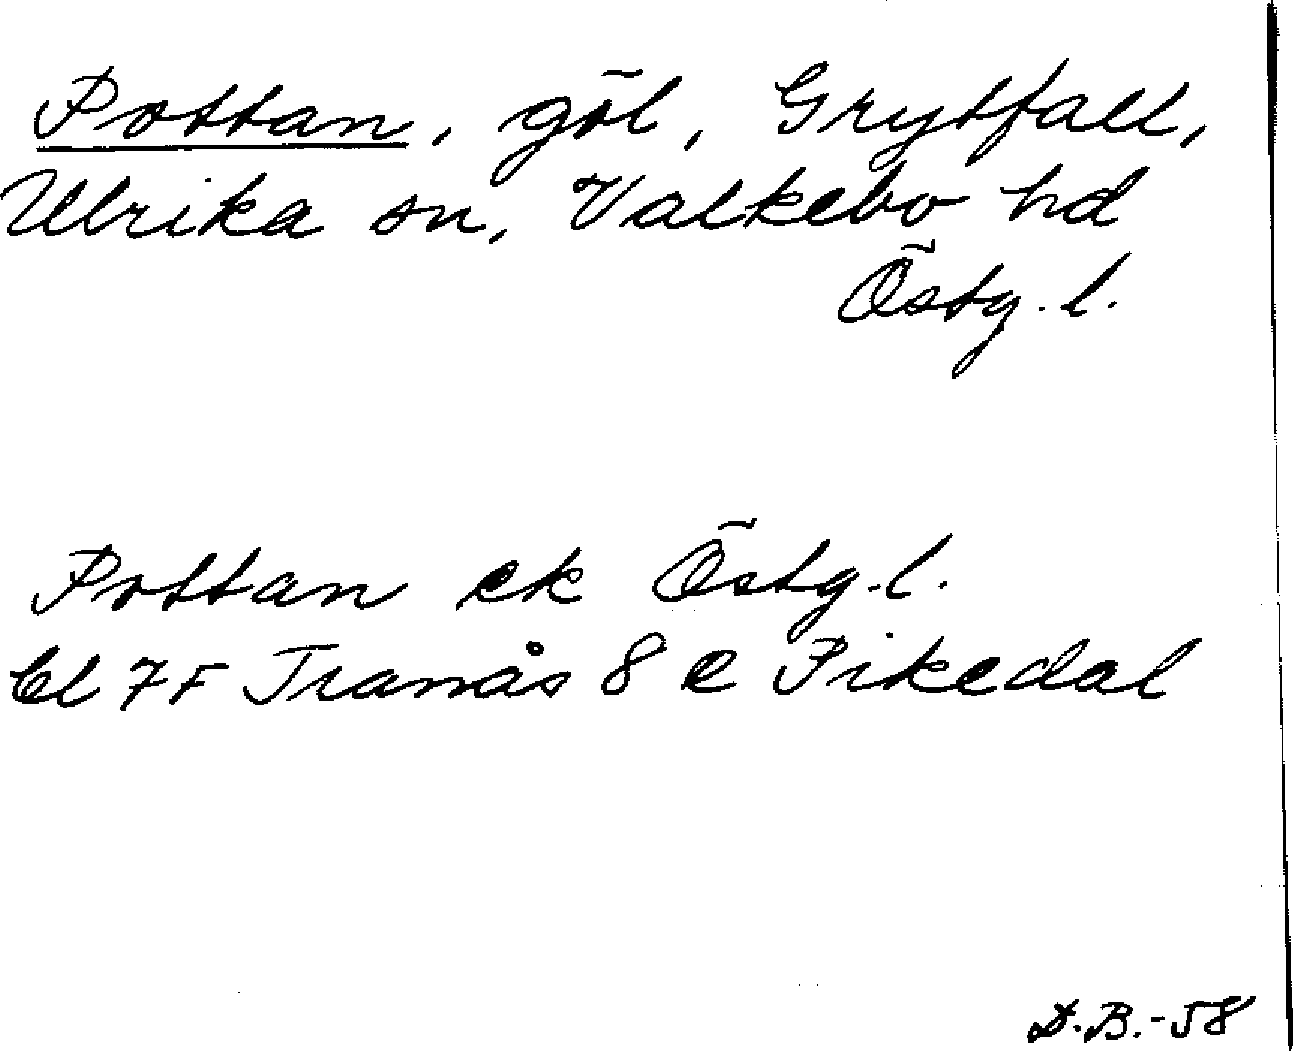 Pottan, göl, Grytfall,
Ulrika sn, Valkebo hd
Östg. l.
Pottan ek Östg. l.
bl 7F Tranås 8 e Pikedal
D.B.-58